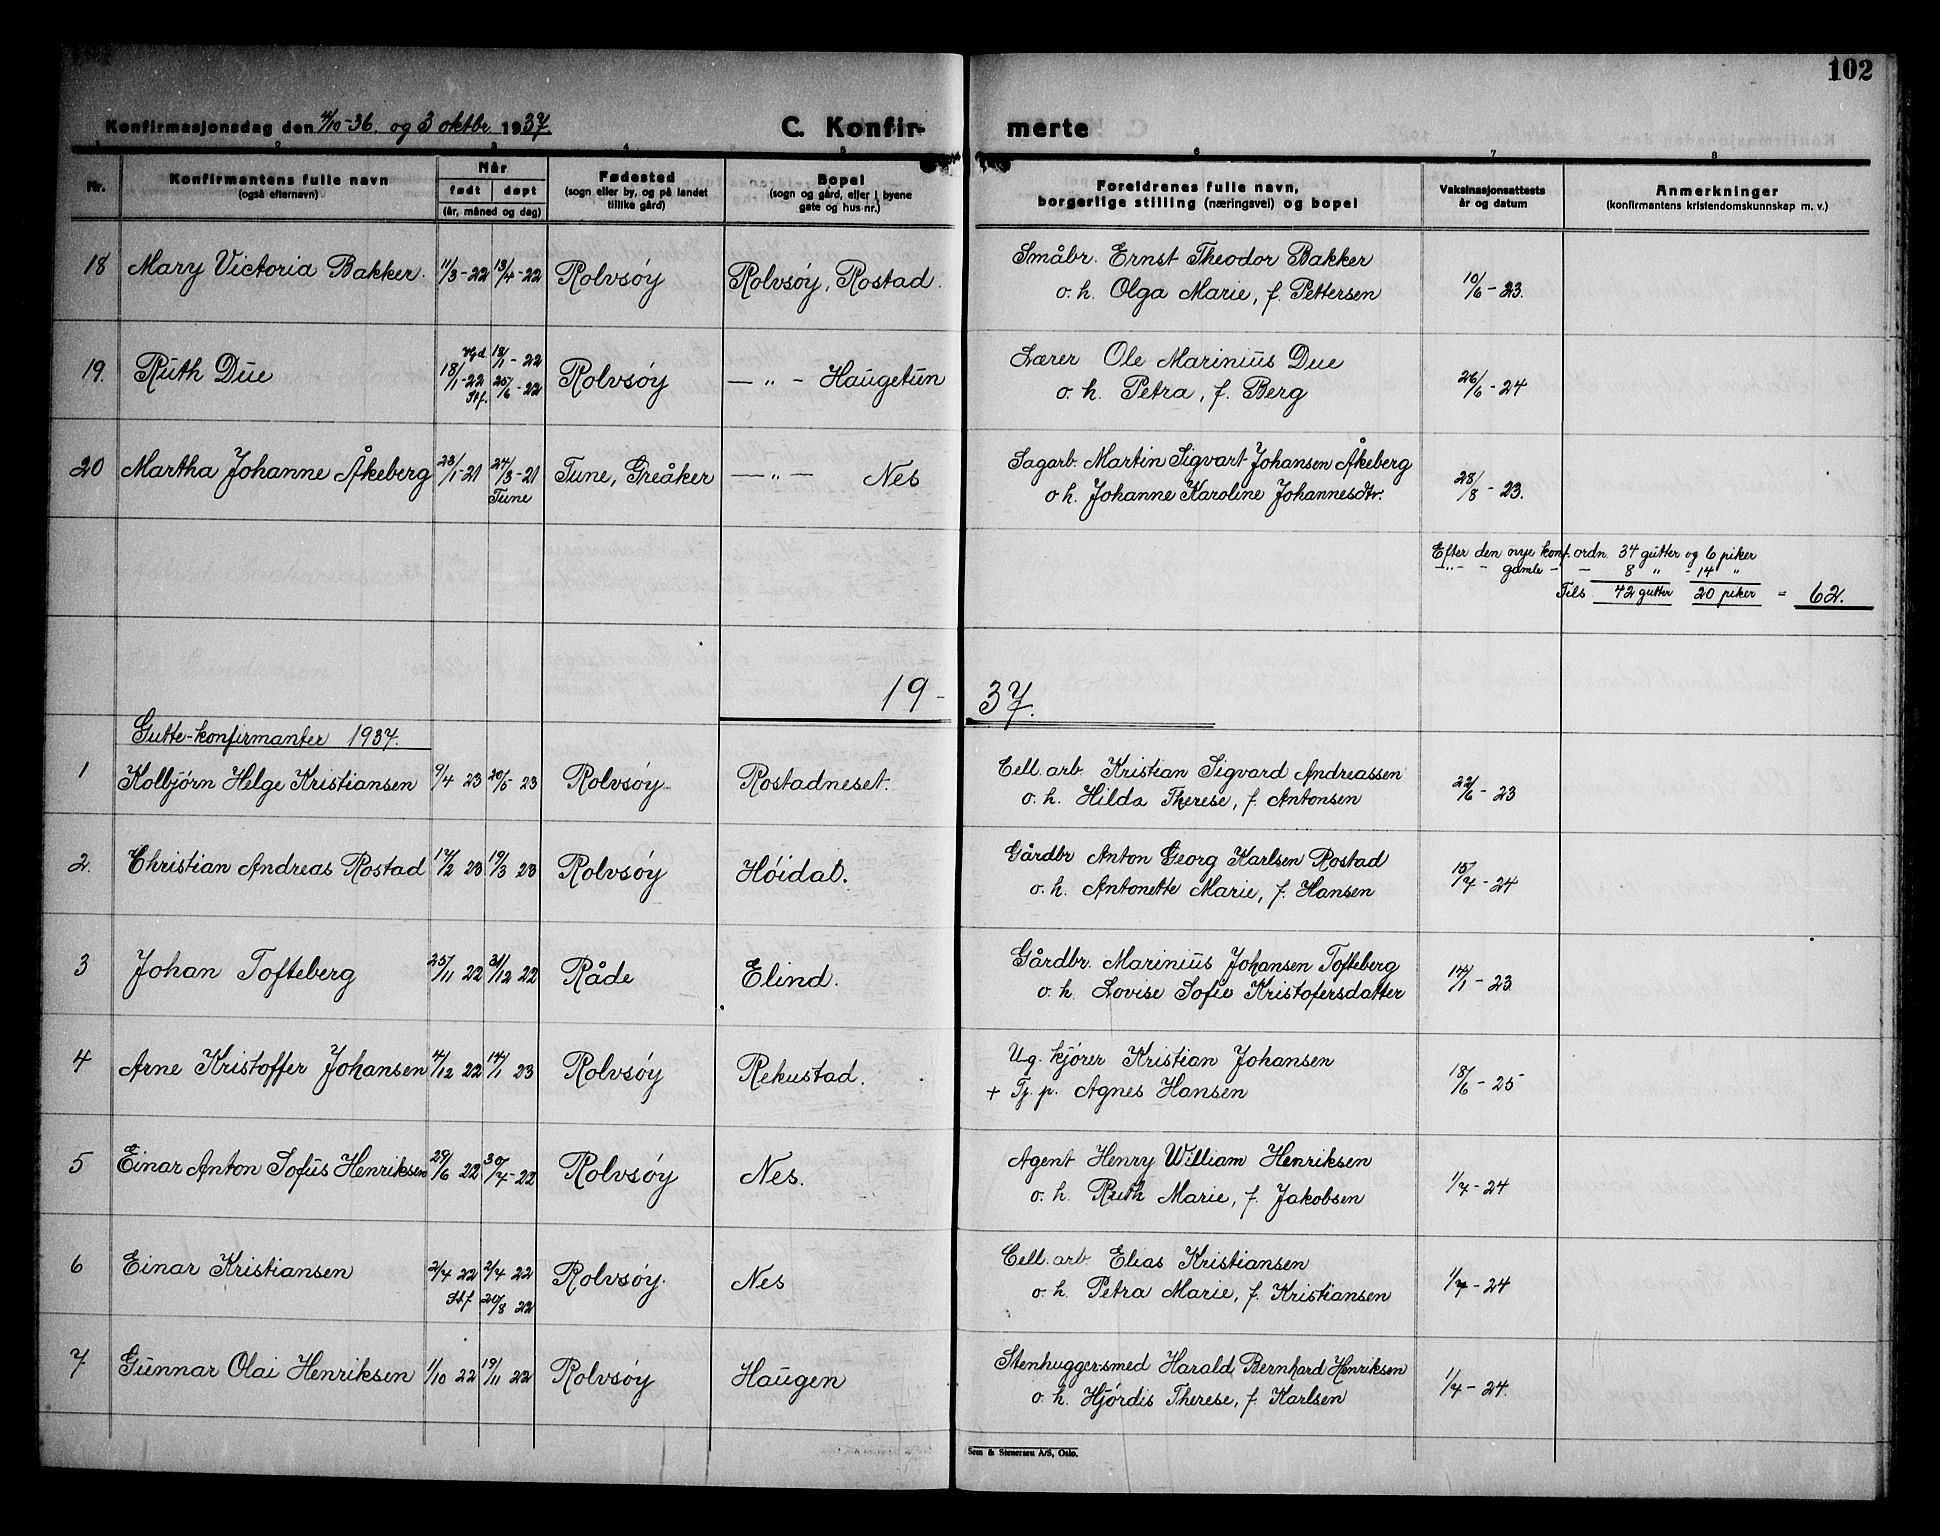 102
Konfirmasjonsdag den 4/10-36. og 3 oktbr. 1937
C. Konfir- merte
1 2 3 4 5 6 7 8
Nr.
Konfirmantens fulle navn
(også efternavn)
Når
født døpt
(år, måned og dag)
Fødested
(sogn eller by, og på landet
tillike gård)
Bopel
(sogn og gård, eller i byene
gate og hus nr.)
Foreldrenes fulle navn,
borgerlige stilling (næringsvei) og bopel
Vaksinasjonsattests
år og datum
Anmerkninger
(konfirmantens kristendomskunnskap m. v.)
18 Mary Victoria Bakker. 11/3-22 13/4-22 Rolvsøy Rolvsøy, Rostad. Småbr. Ernst Theodor Bakker 10/6-23.
o. h. Olga Marie, f. Pettersen
19. Ruth Due 18/1-22 Vgd. 18/1-22 Rolvsøy — " — Haugetun Lærer Ole Marinius Due 26/6-24
Stf. 25/6-22 o. h. Petra, f. Berg
20 Martha Johanne Åkeberg 23/1-21 24/3-21 Tune, Greåker — " — Nes Sagarb. Martin Sigvart Johansen Åkeberg 28/8-23.
Tune o h. Johanne Karoline Johannesdtr.
Efter den nye konf. ordn. 34 gutter og 6 piker
— " — - gamle - — 8 " - 14 "
Tils 42 gutter 20 piker = 62.
19 - 37.
Gutte-konfirmanter 1937.
1 Kolbjørn Helge Kristiansen 9/4 23 20/5 23 Rolvsøy. Rostadneset. Cell. arb. Kristian Sigvard Andreassen 22/6-23
o. h. Hilda Therese, f. Antonsen
2. Christian Andreas Rostad 17/2 23 19/3 23 Rolvsøy Høidal. Gårdbr Anton Georg Karlsen Rostad 15/7-24
o. h. Antonette Marie, f. Hansen
3 Johan Tofteberg 25/11 22 31/12 22 Råde Elind. Gårdbr. Marinius Johansen Tofteberg 14/1-23
o. h. Lovise Sofie Kristofersdatter
4 Arne Kristoffer Johansen 4/12 22 14/1 23 Rolvsøy Rekustad. Ug. kjører Kristian Johansen 18/6-25
+ Tj. p. Agnes Hansen
5 Einar Anton Sofus Henriksen 29/6 22 30/7-22 Rolvsøy Nes. Agent Henry William Henriksen 1/7-24
o. h. Ruth Marie, f. Jakobsen
6 Einar Kristiansen 2/7 22 2/7 22 Rolvsøy. Nes Cell. arb. Elias Kristiansen 1/7-24
Stf 20/8 22 o. h. Petra Marie, f. Kristiansen
7 Gunnar Olai Henriksen 1/10 22 19/11 22 Rolvsøy Haugen Stenhuggersmed Harald Bernhard Henriksen 1/7-24.
o. h. Hjørdis Therese, f. Karlsen
Sem & Stenersen A/S, Oslo.